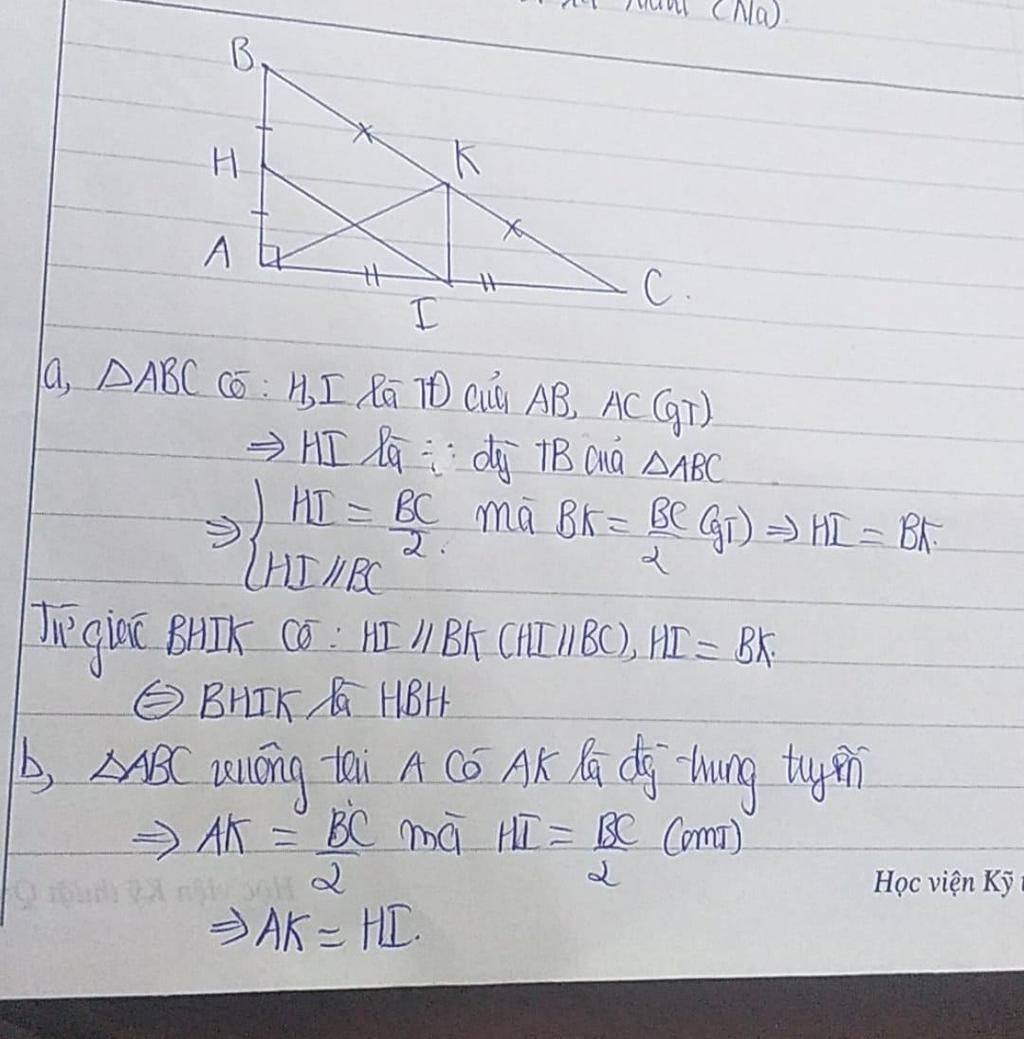 (Na).
B
H
K
A
I
C.
a, △ABC có: H,I là TĐ của AB, AC (gT)
⇒ HI là đg TB của △ABC
⇒ { HI = BC/2. mà BK = BC/2 (gT) ⇒ HI = BK.
HI // BC
Tứ giác BHIK có: HI // BK (HI // BC), HI = BK.
⇔ BHIK là HBH
b, △ABC vuông tại A có AK là đg trung tuyến
⇒ AK = BC/2 mà HI = BC/2 (cmT)
Học viện Kỹ
⇒ AK = HI.